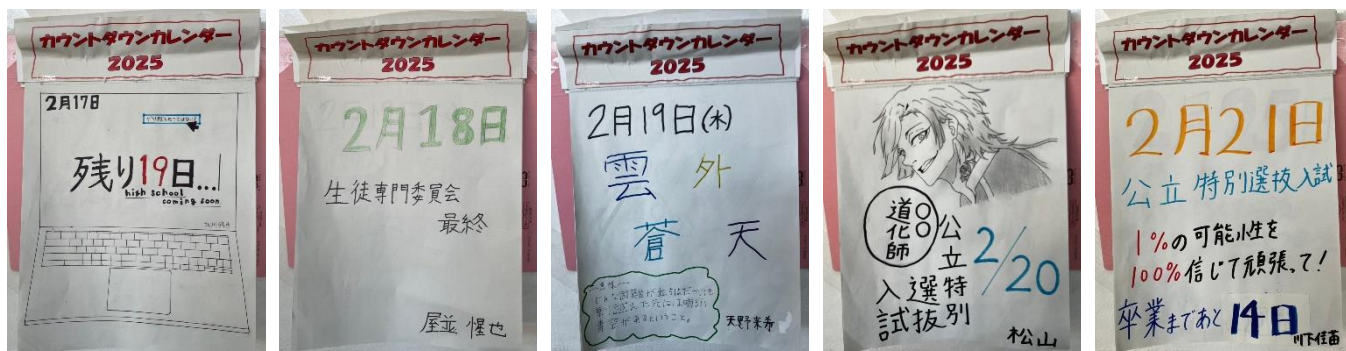 カウントダウンカレンダー
2025
2月17日
残り19日...
high school
coming soon
カウントダウンカレンダー
2025
2月18日
生徒専門委員会
最終
屋並 惺也
カウントダウンカレンダー
2025
2月19日(水)
雲外
蒼天
青空があるということ。
天野来希
カウントダウンカレンダー
2025
2/20
公立
特別
選抜
入試
道化師
○○
松山
カウントダウンカレンダー
2025
2月21日
公立特別選抜入試
1%の可能性を
100%信じて頑張って!
卒業まであと14日
川下佳苗